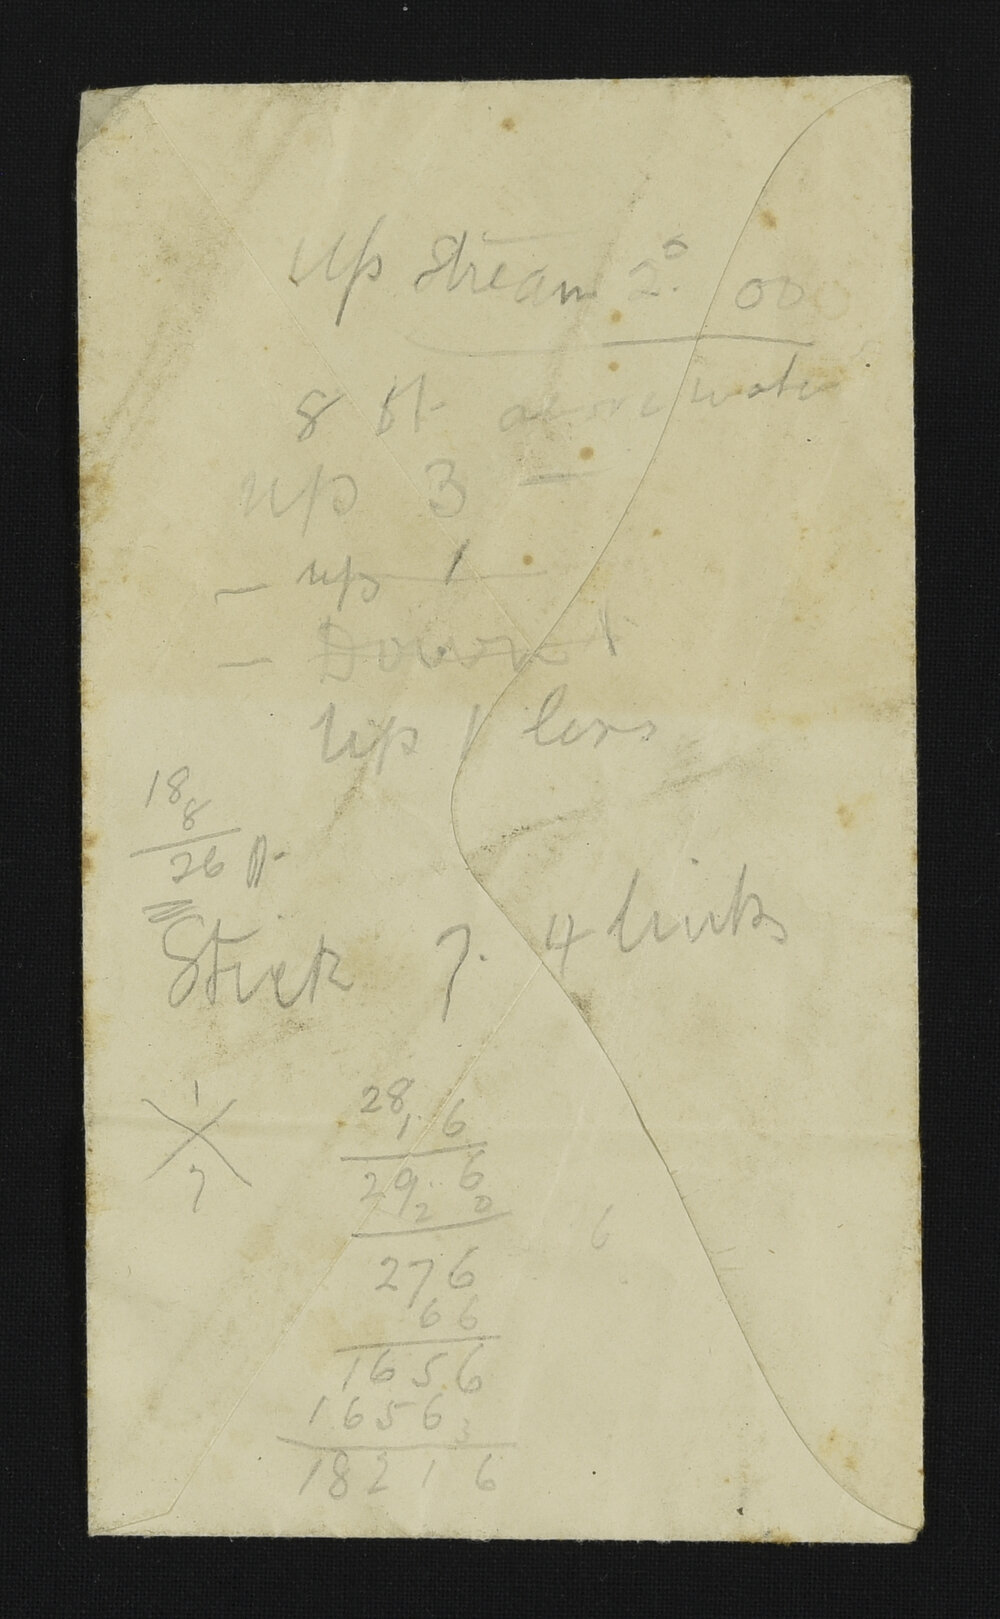 Up Stream 2.° 00
8 ft above water
Up 3 —
— up 1
— Down 1
Up 1 less
18
8
26 ft
Stick 7. 4 links
1
7
28
1. 6
29. 6
2 0
276
66
1656
1656
18216
6